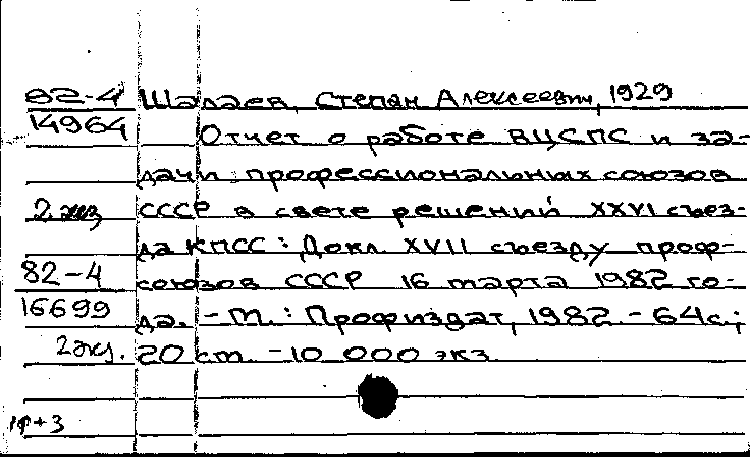 82-4 Шалаев, Степан Алексеевич, 1929
14964 Отчет о работе ВЦСПС и за-
дачи профессиональных союзов
2 экз СССР в свете решений XXVI съез-
да КПСС: Докл. XVII съезду проф-
82-4 союзов СССР 16 марта 1982 го-
16699 да. - М.: Профиздат, 1982. - 64с.;
2 экз. 20 см. - 10 000 экз.
1ф+3